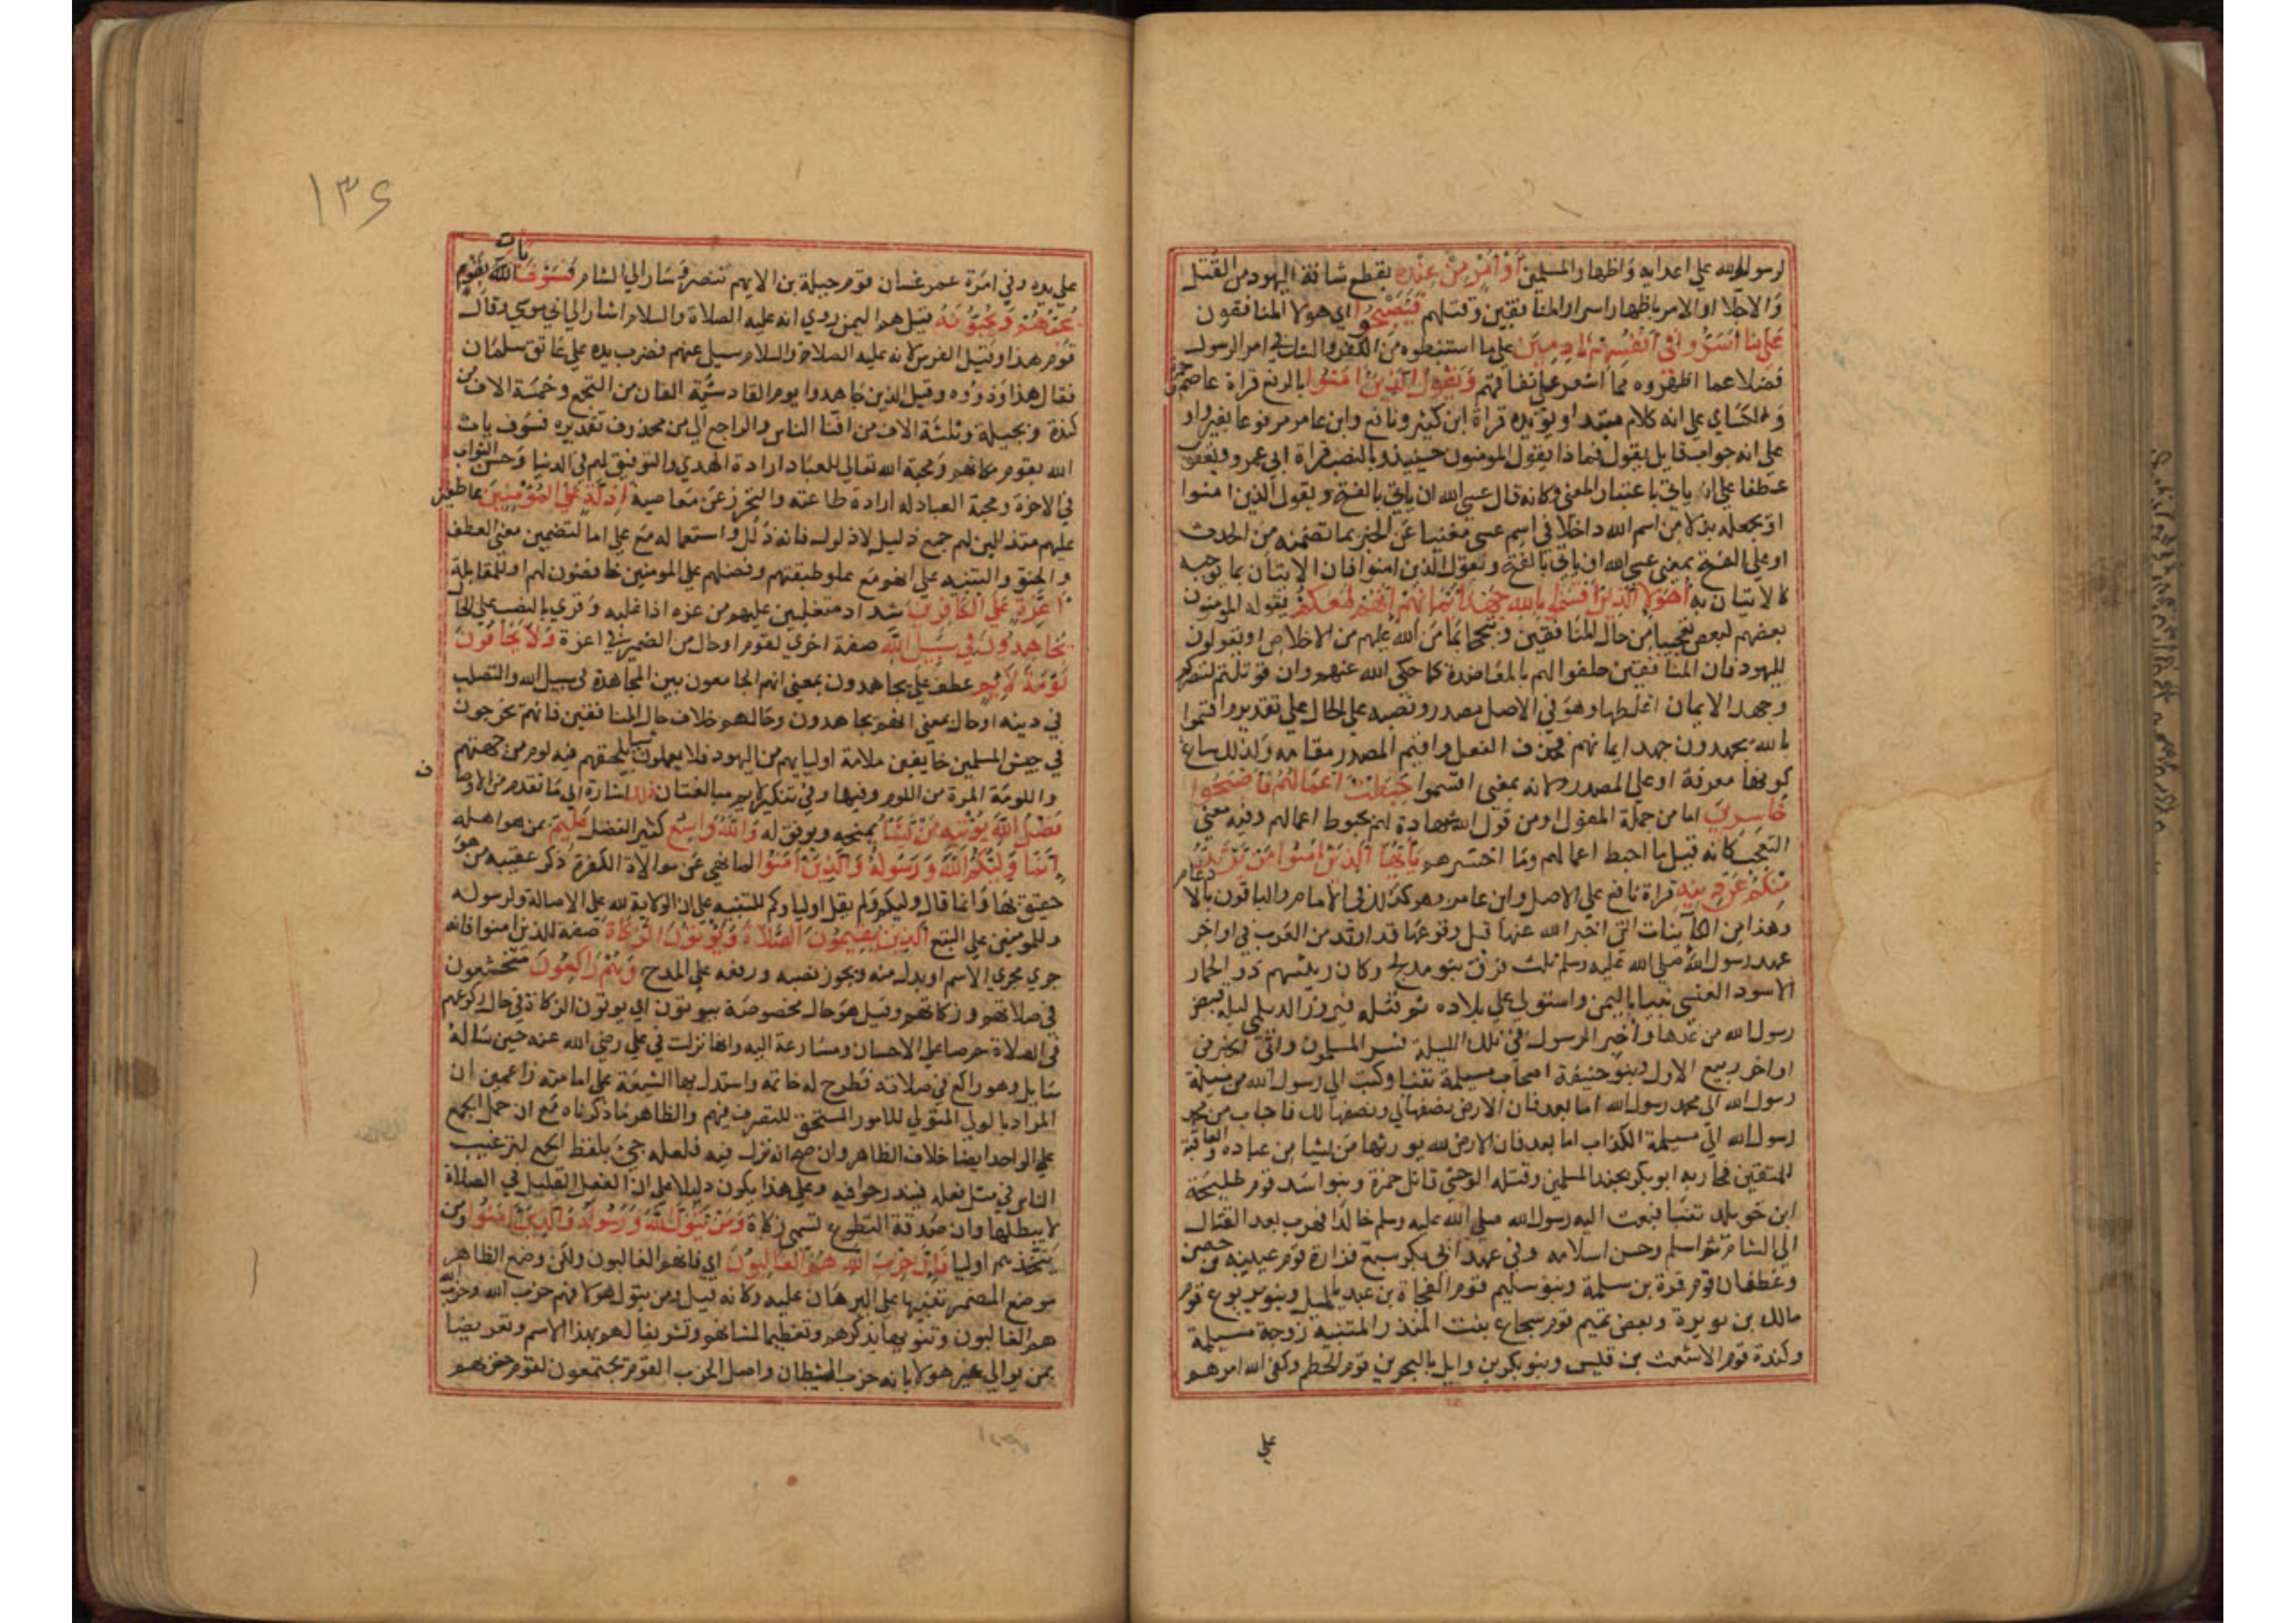 لرسول الله علي اعدايه واظهار المسلمين أَوْ أَمْرٍ مِنْ عِنْدِهِ بقطع شافة اليهود من القتل
والاجلا او الامر باظهار اسرار المنافقين وقتلهم فَيُصْبِحُوا اي هولا المنافقون
عَلَى مَا أَسَرُّوا فِي أَنْفُسِهِمْ نَادِمِينَ علي ما استبطنوه من الكفر والشك في امر الرسول
فضلا عما اظهروه مما اشعر علي نفاقهم وَيَقُولُ الَّذِينَ آمَنُوا بالرفع قراة عاصم وحمزة
والكساي علي انه كلام مبتدا ويؤيده قراة ابن كثير ونافع وابن عامر مرفوعا بغير واو
علي انه جواب قايل يقول فماذا يقول المومنون حينيذ وبالنصب قراة ابي عمرو ويعقوب
عطفا علي ان ياتي باعتبار المعني وكانه قال عسي الله ان ياتي بالفتح ويقول الذين امنوا
او يجعله بدلا من اسم الله داخلا في اسم عسي مغنيا عن الخبر بما تضمنه من الحدث
او علي الفتح بمعني عسي الله ان ياتي بالفتح وبقول الذين امنوا فان الاتيان بما يوجبه
كالاتيان به أَهَؤُلَاءِ الَّذِينَ أَقْسَمُوا بِاللَّهِ جَهْدَ أَيْمَانِهِمْ إِنَّهُمْ لَمَعَكُمْ يقوله المومنون
بعضهم لبعض تعجبا من حال المنافقين وتبجحا بما من الله عليهم من الاخلاص او يقولون
لليهود فان المنافقين حلفوا لهم بالمعاضدة كما حكي الله عنهم وان قوتلتم لننصركم
وجهد الايمان اغلظها وهو في الاصل مصدر ونصبه علي الحال علي تقدير واقسموا
بالله يجهدون جهد ايمانهم فحذف الفعل واقيم المصدر مقامه ولذلك ساغ
كونها معرفة او علي المصدر لانه بمعني اقسموا حَبِطَتْ أَعْمَالُهُمْ فَأَصْبَحُوا
خَاسِرِينَ اما من جملة المقول او من قول الله شهادة لهم بحبوط اعمالهم وفيه معني
التعجب كانه قيل ما احبط اعمالهم وما اخسرهم يَا أَيُّهَا الَّذِينَ آمَنُوا مَنْ يَرْتَدِدْ
مِنْكُمْ عَنْ دِينِهِ قراة نافع علي الاصل وابن عامر وهو كذلك في الامام والباقون بالادغام
وهذا من الكاينات التي اخبر الله عنها قبل وقوعها قد ارتد من العرب في اواخر
عهد رسول الله صلي الله عليه وسلم ثلث فرق بنو مدلج وكان رييسهم ذو الحمار
الاسود العنسي تنبا باليمن واستولي علي بلاده ثم قتله فيروز الديلمي ليلة قبض
رسول الله من غدها واخبر الرسول في تلك الليلة فسر المسلمون واتي الخبر في
اواخر ربيع الاول وبنو حنيفة اصحاب مسيلمة تنبا وكتب الي رسول الله من مسيلمة
رسول الله الي محمد رسول الله اما بعد فان الارض نصفها لي ونصفها لك فاجاب من محمد
رسول الله الي مسيلمة الكذاب اما بعد فان الارض لله يورثها من يشا من عباده والعاقبة
للمتقين فحاربه ابو بكر بجند المسلمين وقتله الوحشي قاتل حمزة وبنو اسد قوم طليحة
ابن خويلد تنبا فبعث اليه رسول الله صلي الله عليه وسلم خالدا فهرب بعد القتال
الي الشام ثم اسلم وحسن اسلامه وفي عهد ابي بكر سبع فزارة قوم عيينة بن حصن
وغطفان قوم قرة بن سلمة وبنو سليم قوم الفجاة بن عبد ياليل وبنو يربوع قوم
مالك بن نويرة وبعض تميم قوم سجاع بنت المنذر المتنبية زوجة مسيلمة
وكندة قوم الاشعث بن قيس وبنو بكر بن وايل بالبحرين قوم الحطم وكفي الله امرهم
علي
١٣٤
علي يده وفي امرة عمر غسان قوم جبلة بن الايهم تنصر وسار الي الشام فَسَوْفَ يَأْتِي اللَّهُ بِقَوْمٍ
يُحِبُّهُمْ وَيُحِبُّونَهُ قيل هم اليمن روي انه عليه الصلاة والسلام اشار الي ابي موسي وقال
قوم هذا وقيل الفرس لانه عليه الصلاة والسلام سيل عنهم فضرب يده علي عاتق سلمان
فقال هذا وذووه وقيل الذين جاهدوا يوم القادسية الفان من النخع وخمسة الاف من
كندة وبجيلة وثلثة الاف من افنا الناس والراجع الي من محذوف تقديره فسوف ياتي
الله بقوم مكانهم ومحبة الله تعالي للعباد ارادة الهدي والتوفيق لهم في الدنيا وحسن الثواب
في الاخرة ومحبة العباد له ارادة طاعته والتحرز عن معاصيه أَذِلَّةٍ عَلَى الْمُؤْمِنِينَ عاطفين
عليهم متذللين لهم جمع ذليل لا ذلول فانه ذلل واستعماله مع علي اما لتضمين معني العطف
والحنو والتنبيه علي انهم مع علو طبقتهم وفضلهم علي المومنين خافضون لهم او للمقابلة
أَعِزَّةٍ عَلَى الْكَافِرِينَ شداد متغلبين عليهم من عزه اذا غلبه وقري بالنصب علي الحال
يُجَاهِدُونَ فِي سَبِيلِ اللَّهِ صفة اخري لقوم او حال من الضمير في اعزة وَلَا يَخَافُونَ
لَوْمَةَ لَائِمٍ عطف علي يجاهدون بمعني انهم الجامعون بين المجاهدة في سبيل الله والتصلب
في دينه او حال بمعني انهم يجاهدون وحالهم خلاف حال المنافقين فانهم يخرجون
في جيش المسلمين خايفين ملامة اوليايهم من اليهود فلا يعملون شيا يلحقهم فيه لوم من جهتهم
واللومة المرة من اللوم وفيها وفي تنكير لايم مبالغتان ذَلِكَ اشارة الي ما تقدم من الاوصاف
فَضْلُ اللَّهِ يُؤْتِيهِ مَنْ يَشَاءُ يمنحه ويوفق له وَاللَّهُ وَاسِعٌ كثير الفضل عَلِيمٌ بمن هو اهله
إِنَّمَا وَلِيُّكُمُ اللَّهُ وَرَسُولُهُ وَالَّذِينَ آمَنُوا لما نهي عن موالاة الكفرة ذكر عقيبه من هو
حقيق بها وانما قال وليكم ولم يقل اولياوكم للتنبيه علي ان الولاية لله علي الاصالة ولرسوله
وللمومنين علي التبع الَّذِينَ يُقِيمُونَ الصَّلَاةَ وَيُؤْتُونَ الزَّكَاةَ صفة للذين امنوا فانه
جري مجري الاسم او بدل منه ويجوز نصبه ورفعه علي المدح وَهُمْ رَاكِعُونَ متخشعون
في صلاتهم وزكاتهم وقيل هو حال مخصوصة بيوتون اي يوتون الزكاة في حال ركوعهم
في الصلاة حرصا علي الاحسان ومسارعة اليه وانها نزلت في علي رضي الله عنه حين ساله
سايل وهو راكع في صلاته فطرح له خاتمه واستدل بها الشيعة علي امامته زاعمين ان
المراد بالولي المتولي للامور المستحق للتصرف فيهم والظاهر ما ذكرناه مع ان حمل الجمع
علي الواحد ايضا خلاف الظاهر وان صح انه نزل فيه فلعله جيء بلفظ الجمع لترغيب
الناس في مثل فعله فيندرجوا فيه وعلي هذا يكون دليلا علي ان الفعل القليل في الصلاة
لا يبطلها وان صدقة التطوع تسمي زكاة وَمَنْ يَتَوَلَّ اللَّهَ وَرَسُولَهُ وَالَّذِينَ آمَنُوا ومن
يتخذهم اوليا فَإِنَّ حِزْبَ اللَّهِ هُمُ الْغَالِبُونَ اي فانهم الغالبون ولكن وضع الظاهر
موضع المضمر تنبيها علي البرهان عليه وكانه قيل ومن يتول هولا فهم حزب الله وحزب الله
هم الغالبون وتنويها بذكرهم وتعظيما لشانهم وتشريفا لهم بهذا الاسم وتعريضا
بمن يوالي غير هولا بانه حزب الشيطان واصل الحزب القوم يجتمعون لقوم حزبهم